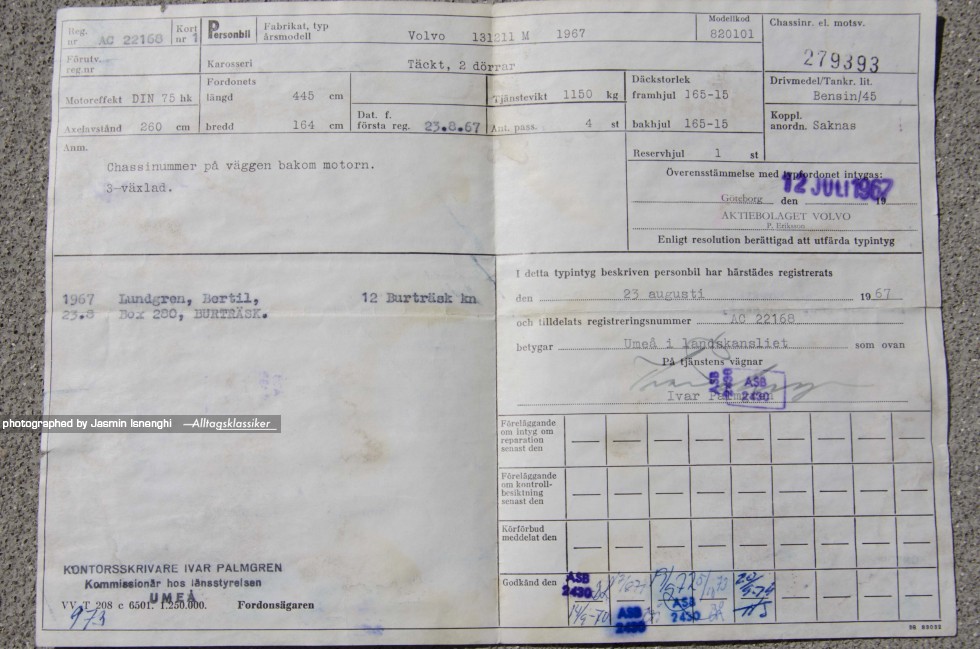 Reg. nr AC 22168 Kort nr 1 Personbil Fabrikat, typ årsmodell Volvo 131211 M 1967 Modellkod 820101
Chassinr. el. motsv.
279393
Förutv. reg.nr
Karosseri Täckt, 2 dörrar
Motoreffekt DIN 75 hk
Fordonets
längd 445 cm
Tjänstevikt 1150 kg
Däckstorlek
framhjul 165-15
Drivmedel/Tankr. lit.
Bensin/45
Axelavstånd 260 cm
bredd 164 cm
Dat. f.
första reg. 23.8.67
Ant. pass. 4 st
bakhjul 165-15
Koppl.
anordn. Saknas
Anm.
Chassinummer på väggen bakom motorn.
3-växlad.
Reservhjul 1 st
Överensstämmelse med typfordonet intygas:
Göteborg den 12 JULI 1967 19
AKTIEBOLAGET VOLVO
P. Eriksson
Enligt resolution berättigad att utfärda typintyg
1967 Lundgren, Bertil, 12 Burträsk kn
23.8 Box 280, BURTRÄSK.
I detta typintyg beskriven personbil har härstädes registrerats
den 23 augusti 1967
och tilldelats registreringsnummer AC 22168
betygar Umeå i landskansliet som ovan
På tjänstens vägnar
ASB 2430
ASB
2430
Ivar
photographed by Jasmin Isnenghi —Alltagsklassiker_
Föreläggande
om intyg om
reparation
senast den
Föreläggande
om kontroll-
besiktning
senast den
Körförbud
meddelat den
Godkänd den
ASB
2430
14/5-70
ASB
2430
ASB
2430
KONTORSSKRIVARE IVAR PALMGREN
Kommissionär hos länsstyrelsen
UMEÅ
VV T 208 c 6501. 1.250.000. Fordonsägaren
973